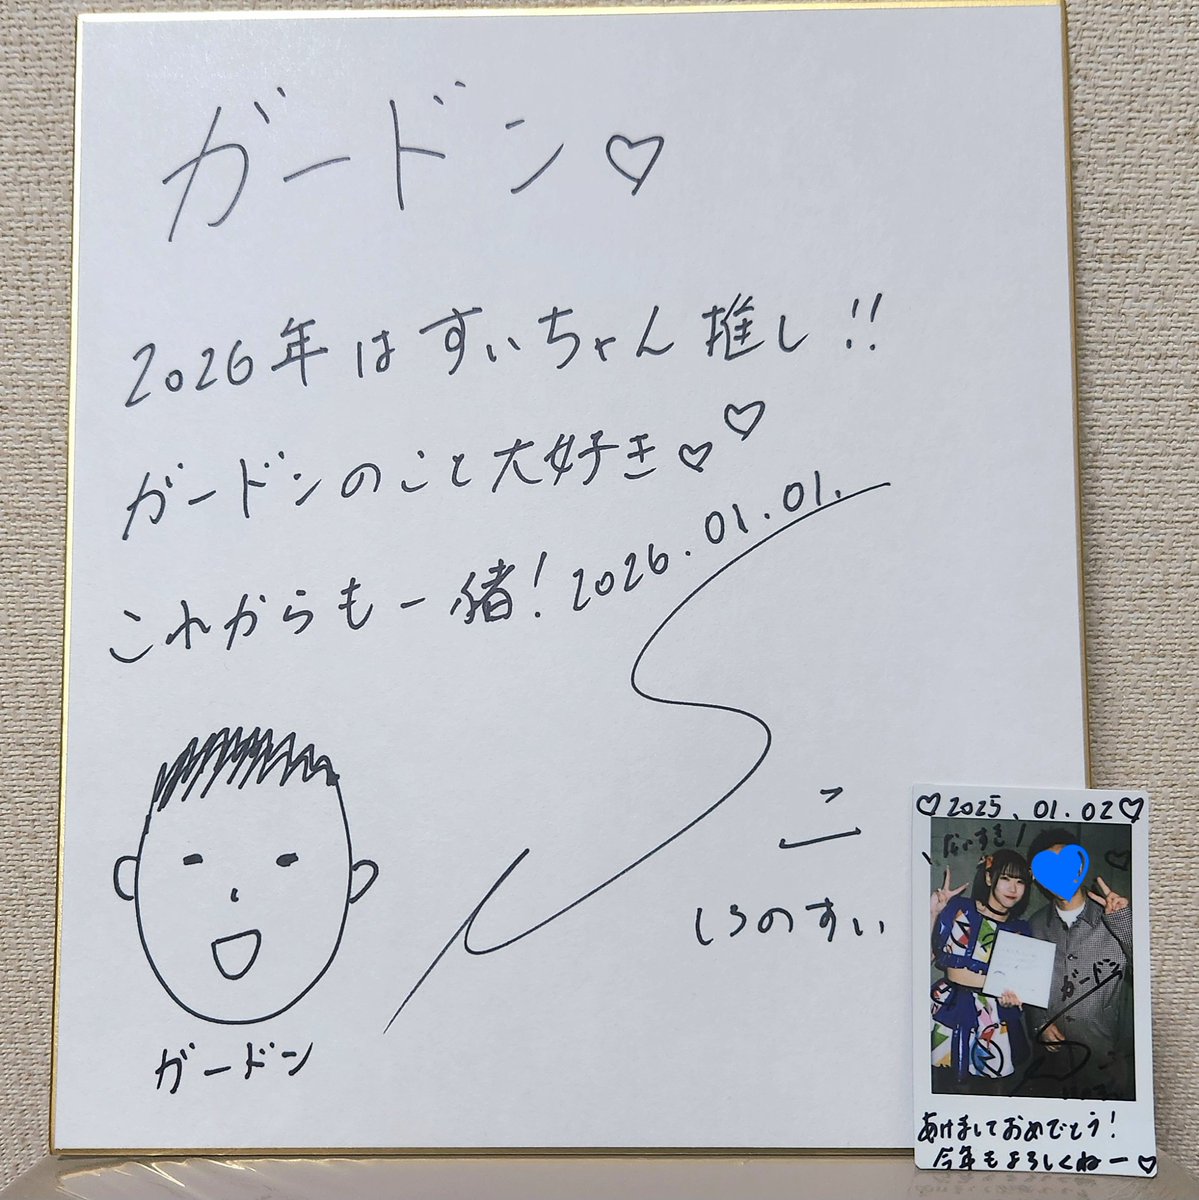 ガードン♡
2026年はすぃちゃん推し!!
ガードンのこと大好き♡♡
これからも一緒!2026.01.01.
しろのすぃ
ガードン
♡2025.01.02♡
だいすき!
ガードン
あけましておめでとう!
今年もよろしくねー♡